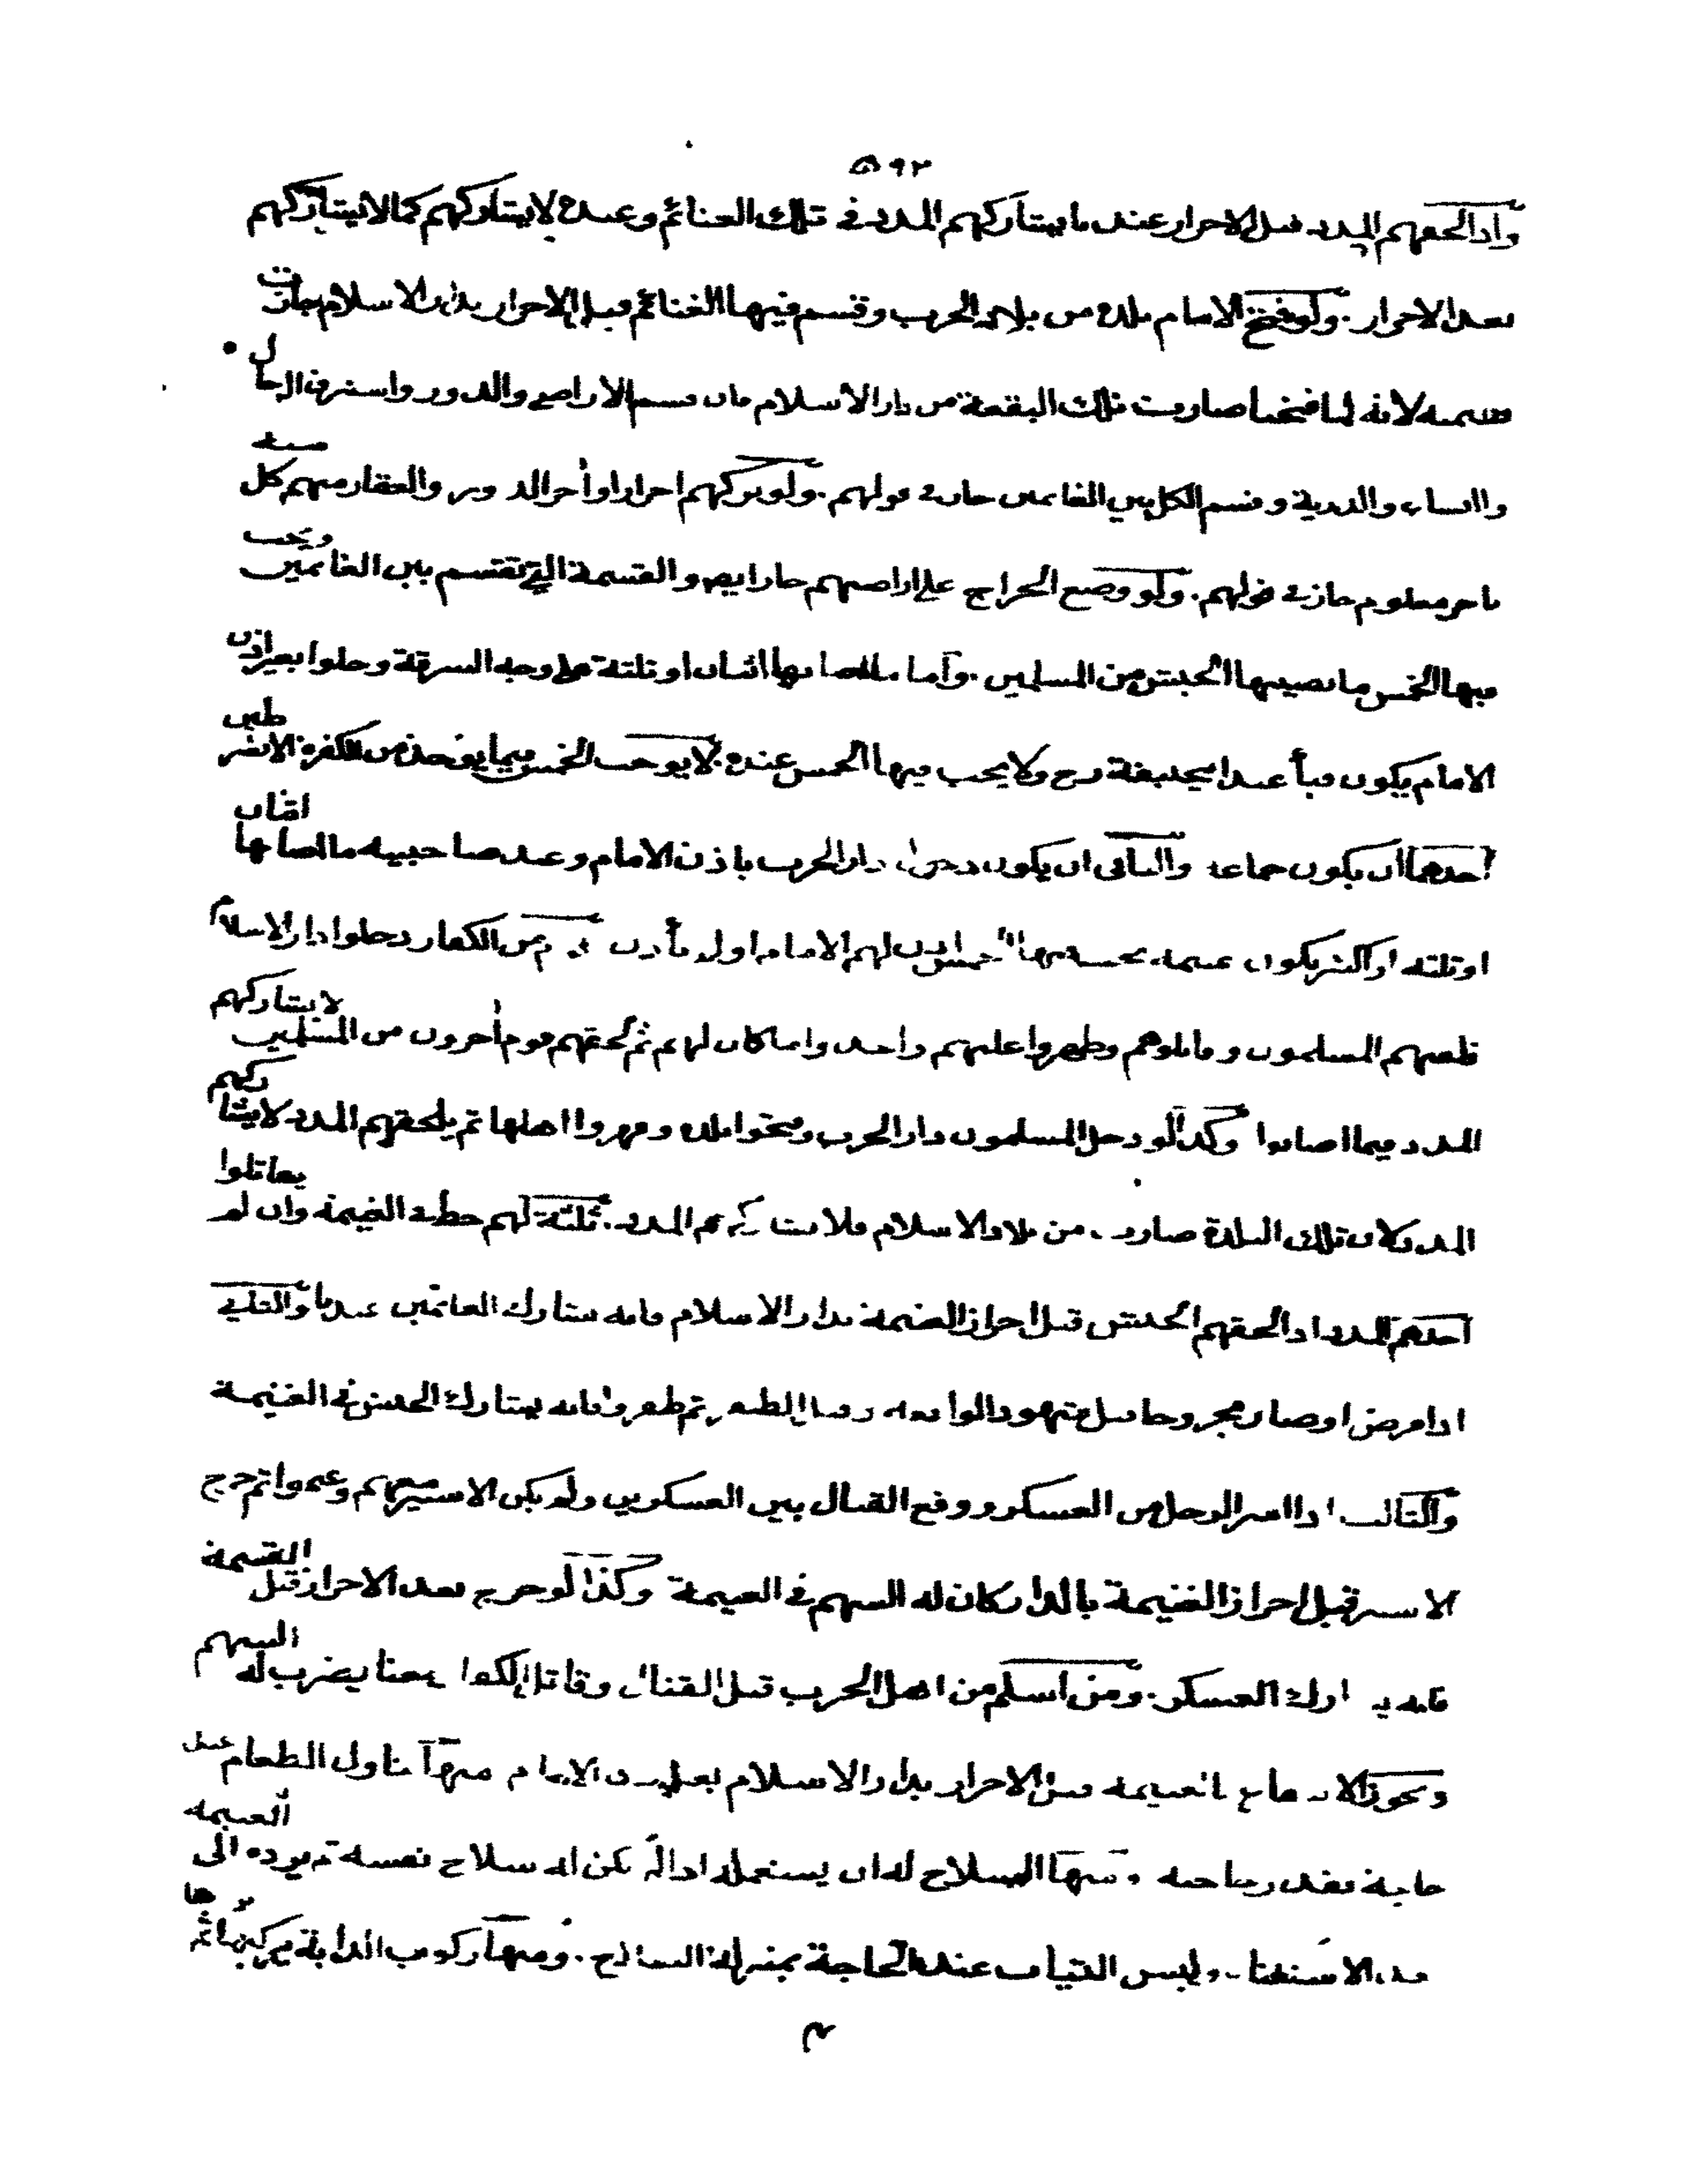 ٥٩٢
واذا لحقهم المدد قبل الاحراز عندنا يشاركهم المدد في تلك الغنائم وعنده لا يشاركهم كما لا يشاركهم
بعد الاحراز . ولو فتح الامام بلدة من بلاد الحرب وقسم فيها الغنائم قبل الاحراز بدار الاسلام جازت
قسمته لانه لما فتحها صارت تلك البقعة من دار الاسلام فان قسم الاراضي والدور واسترق الرجال
والنساء والذرية وقسم الكل بين الغانمين جاز في قولهم . ولو تركهم احرارا والدور والعقار منهم كل سنة
معلوم جاز في قولهم . ولو وضع الخراج على اراضيهم جاز ايضا والقسمة التي تقسم بين الغانمين ويجب
فيها الخمس ما يصيبها الجيش من المسلمين . واما ما اصابها اثنان او ثلثة على وجه السرقة ودخلوا بغير اذن
الامام يكون عند ابي حنيفة رح ولا يجب فيها الخمس عنده لا يوجب الخمس فيما يؤخذ من الكفرة الا بشرطين
احدهما ان يكون جماعة والثاني ان يكون دخول دار الحرب باذن الامام وعند صاحبيه ما اصابها اثنان
او ثلثة او اكثر يكون غنيمة لهم الامام اولم يأذن قوم من الكفار دخلوا دار الاسلام
فلقيهم المسلمون وقاتلوهم وظهروا عليهم كان لهم ثم لحقهم قوم آخرون من المسلمين لا يشاركهم
المدد فيما اصابوا وكذا لو دخل المسلمون دار الحرب وفتحوا بلدة وقهروا اهلها ثم يلحقهم المدد لا يشاركهم
المدد لان تلك البلدة صارت من بلاد الاسلام فلا المدد . ثلثة لهم حظ في الغنيمة وان لم يقاتلوا
احدهم المدد اذا لحقهم الجيش قبل احراز الغنيمة بدار الاسلام فانه يشارك الغانمين عندنا والثاني
اذا مرض او صار مجروحا قبل شهود الواقعة ثم ظفروا فانه يشارك الجيش في الغنيمة
والثالث اذا اسر الرجل من العسكر ووقع القتال بين العسكرين ولم يكن الاسير معهم وغنموا ثم خرج
الاسير قبل احراز الغنيمة بالدار كان له السهم في الغنيمة وكذا لو خرج بعد الاحراز قبل القسمة
فانه يشارك العسكر . ومن اسلم من اهل الحرب قبل القتال وقاتل الكفار معنا يضرب له السهم
ويجوز الانتفاع بالغنيمة قبل الاحراز بدار الاسلام بغير اذن الامام منها تناول الطعام عند
حاجة بقدر حاجته ومنها السلاح له ان يستعمله اذا لم يكن له سلاح نفسه ثم يرده الى الغنيمة
بعد الاستغناء ولبس الثياب عند الحاجة بمنزلة السلاح . ومنها ركوب الدابة يركبها ثم يردها